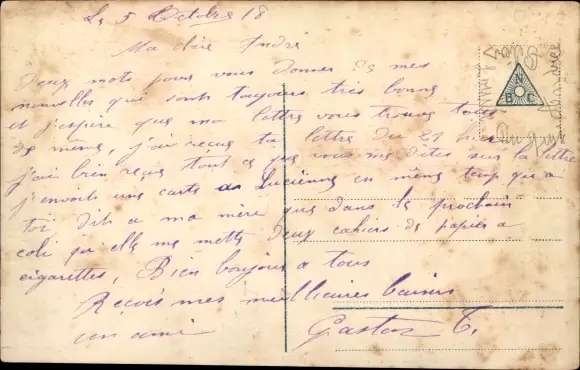 Le 5 Octobre 18
Ma chère André
Deux mots pour vous donner de mes
nouvelles qui sont toujours très bonne
et j'espère que ma lettre vous trouve tous
de même, j'ai reçue ta lettre du 29 hier
j'ai bien reçue tout ce que vous me dites sur la lettre
j'envoit une carte a Lucienne en même temp qu'a
toi, dit a ma mère que dans le prochain
coli qu'elle me mette deux cahiers de papier a
cigarettes, Bien bonjour a tous
Reçois mes meilleures baisers
un ami Gaston T.
N
B G